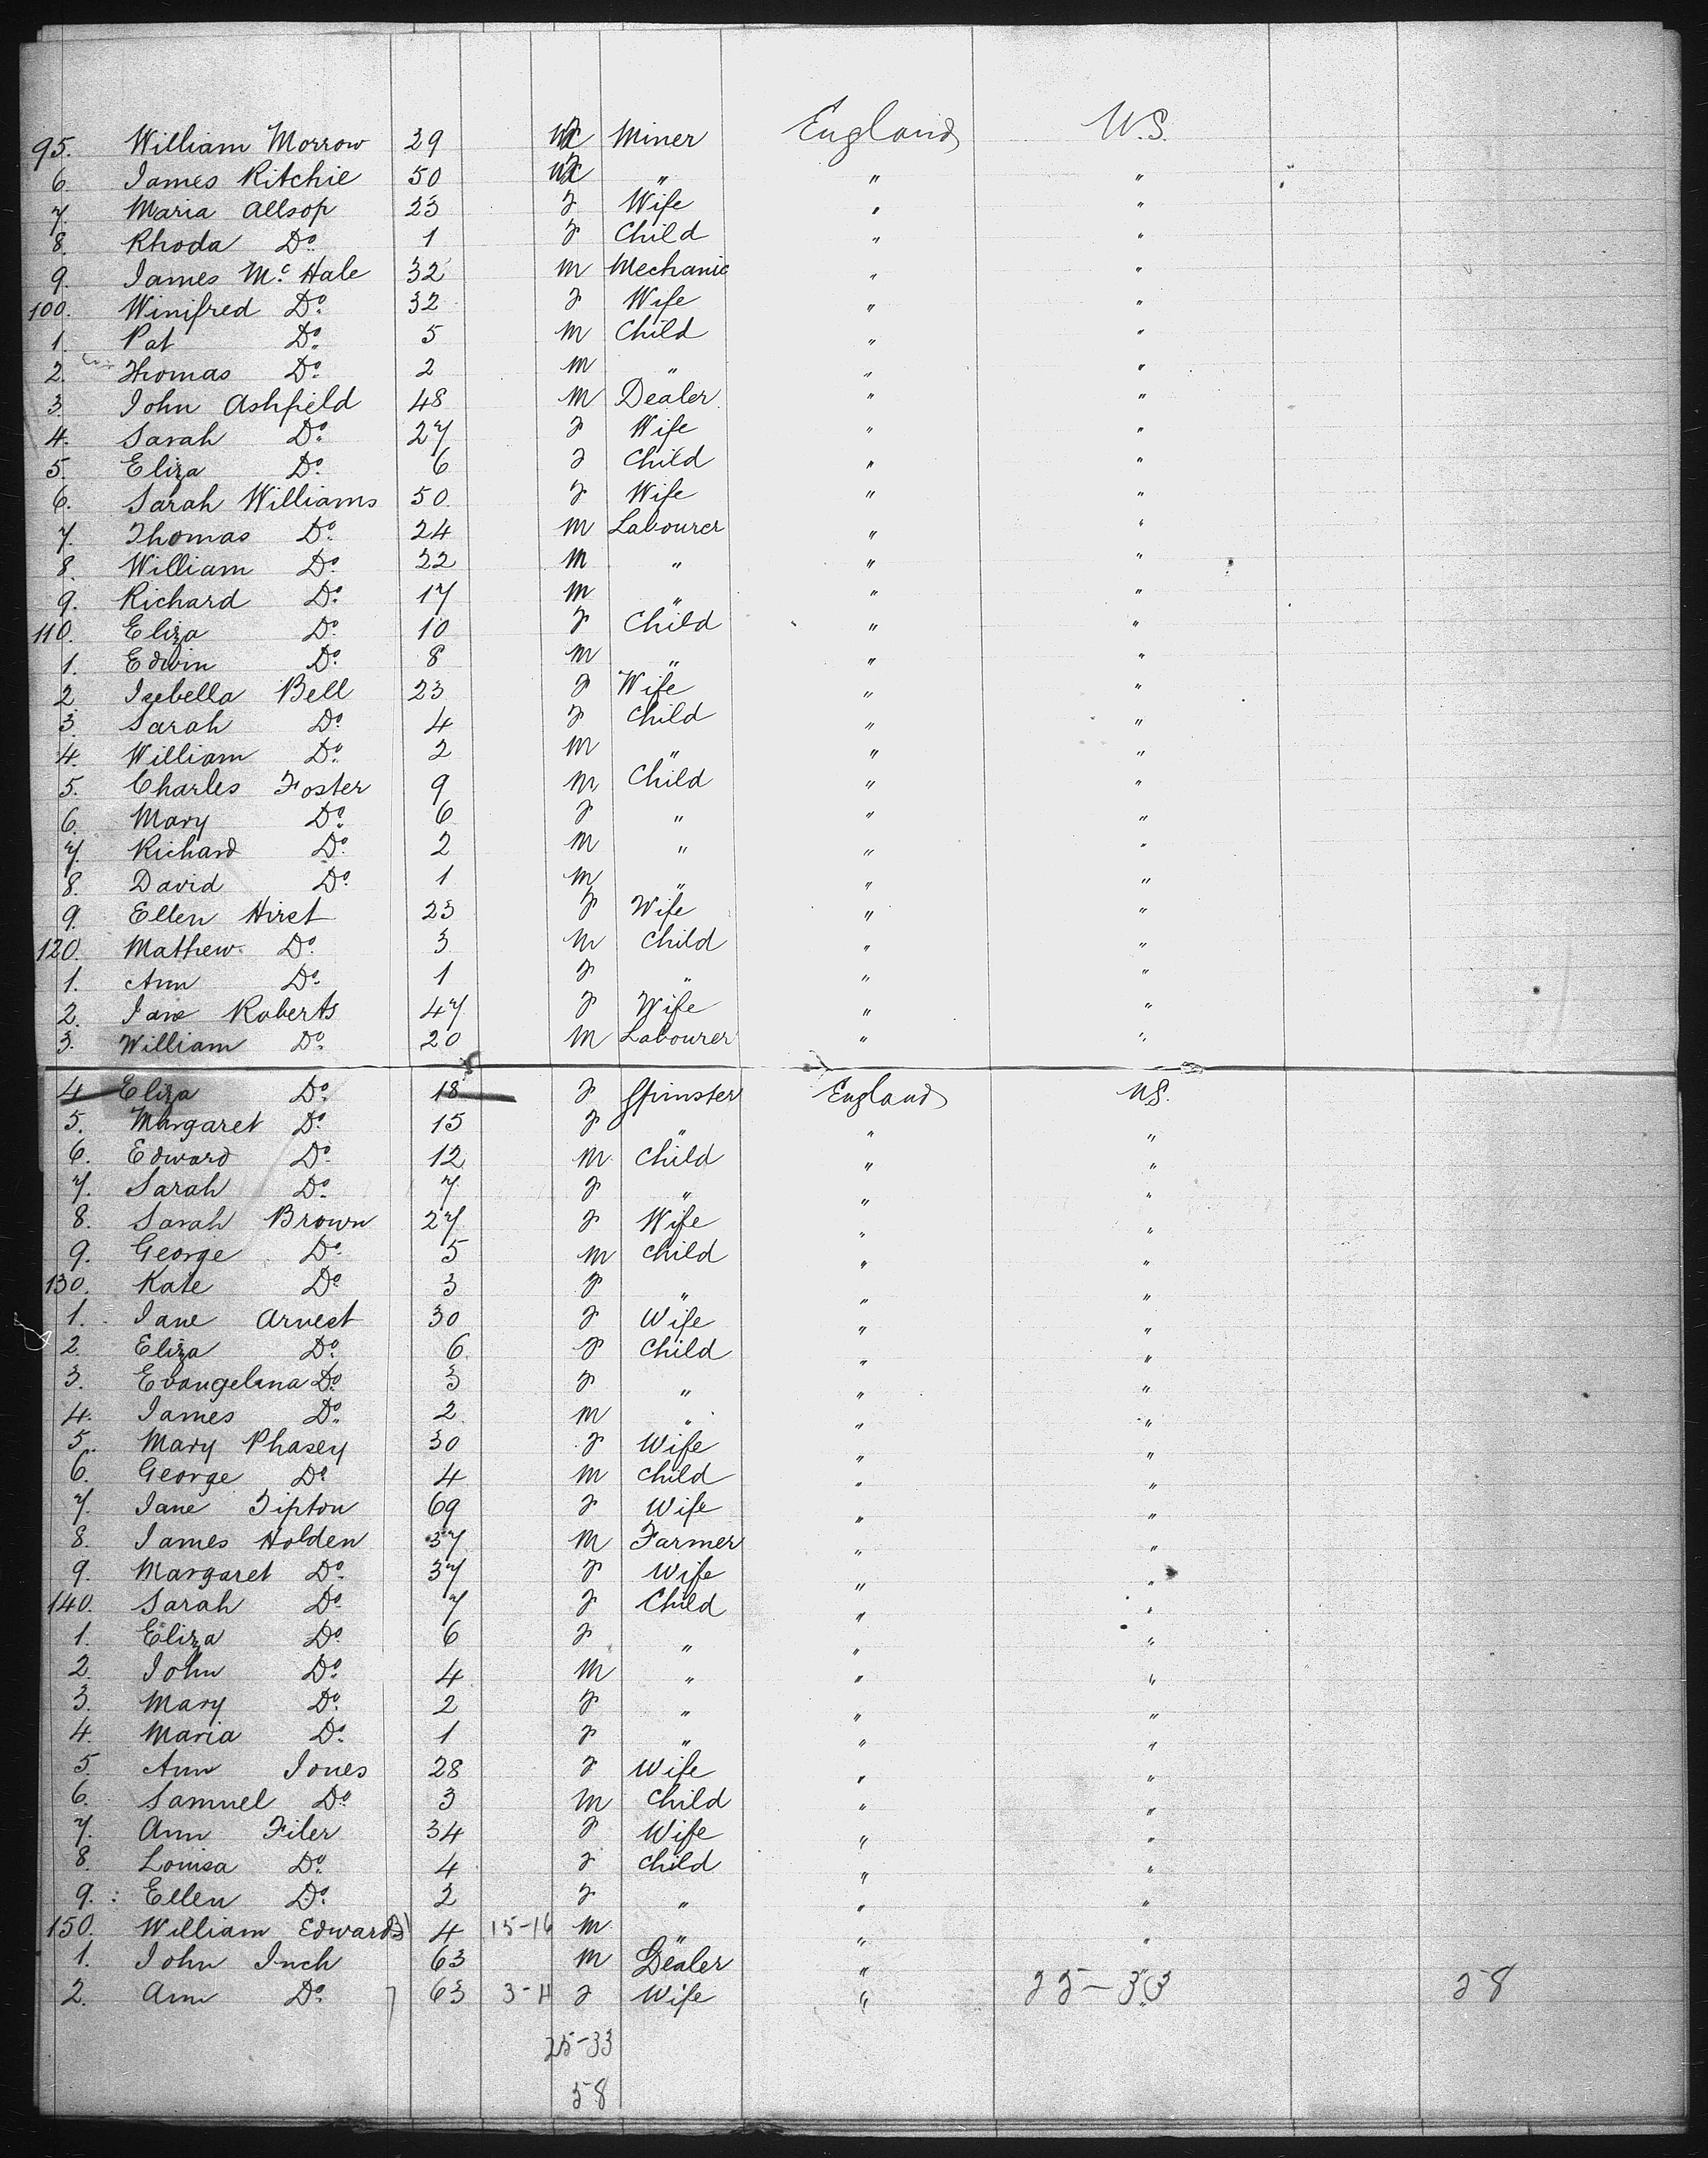 95. William Morrow 29 m Miner England U.S.
6. James Ritchie 50 m " " "
7. Maria Allsop 23 F Wife " "
8. Rhoda Do. 1 F Child " "
9. James Mc. Hale 32 m Mechanic " "
100. Winifred Do. 32 F Wife " "
1. Pat Do. 5 m Child " "
2. Thomas Do. 2 m " " "
3. John Ashfield 48 m Dealer " "
4. Sarah Do. 27 F Wife " "
5. Eliza Do. 6 F Child " "
6. Sarah Williams 50 F Wife " "
7. Thomas Do. 24 m Labourer " "
8. William Do. 22 m " " "
9. Richard Do. 17 m " " "
110. Eliza Do. 10 F Child " "
1. Edwin Do. 8 m " " "
2. Isebella Bell 23 F Wife " "
3. Sarah Do. 4 F Child " "
4. William Do. 2 m " " "
5. Charles Foster 9 m Child " "
6. Mary Do. 6 F " " "
7. Richard Do. 2 m " " "
8. David Do. 1 m " " "
9. Ellen Hirst 23 F Wife " "
120. Mathew Do. 3 m Child " "
1. Ann Do. 1 F " " "
2. Jane Roberts 47 F Wife " "
3. William Do. 20 m Labourer " "
4. Eliza Do. 18 F Spinster England U.S.
5. Margaret Do. 15 F " " "
6. Edward Do. 12 m Child " "
7. Sarah Do. 7 F " " "
8. Sarah Brown 27 F Wife " "
9. George Do. 5 m Child " "
130. Kate Do. 3 F " " "
1. Jane Arnest 30 F Wife " "
2. Eliza Do. 6 F Child " "
3. Evangelina Do. 3 F " " "
4. James Do. 2 m " " "
5. Mary Phasey 30 F Wife " "
6. George Do. 4 m Child " "
7. Jane Tipton 69 F Wife " "
8. James Holden 37 m Farmer " "
9. Margaret Do. 37 F Wife " "
140. Sarah Do. 7 F Child " "
1. Eliza Do. 6 F " " "
2. John Do. 4 m " " "
3. Mary Do. 2 F " " "
4. Maria Do. 1 F " " "
5. Ann Jones 28 F Wife " "
6. Samuel Do. 3 m Child " "
7. Ann Filer 34 F Wife " "
8. Louisa Do. 4 F Child " "
9. Ellen Do. 2 F " " "
150. William Edwards 4 15-16 m " " "
1. John Inch 63 m Dealer " "
2. Ann Do. 63 F Wife " " 25-33 58
25-33
58